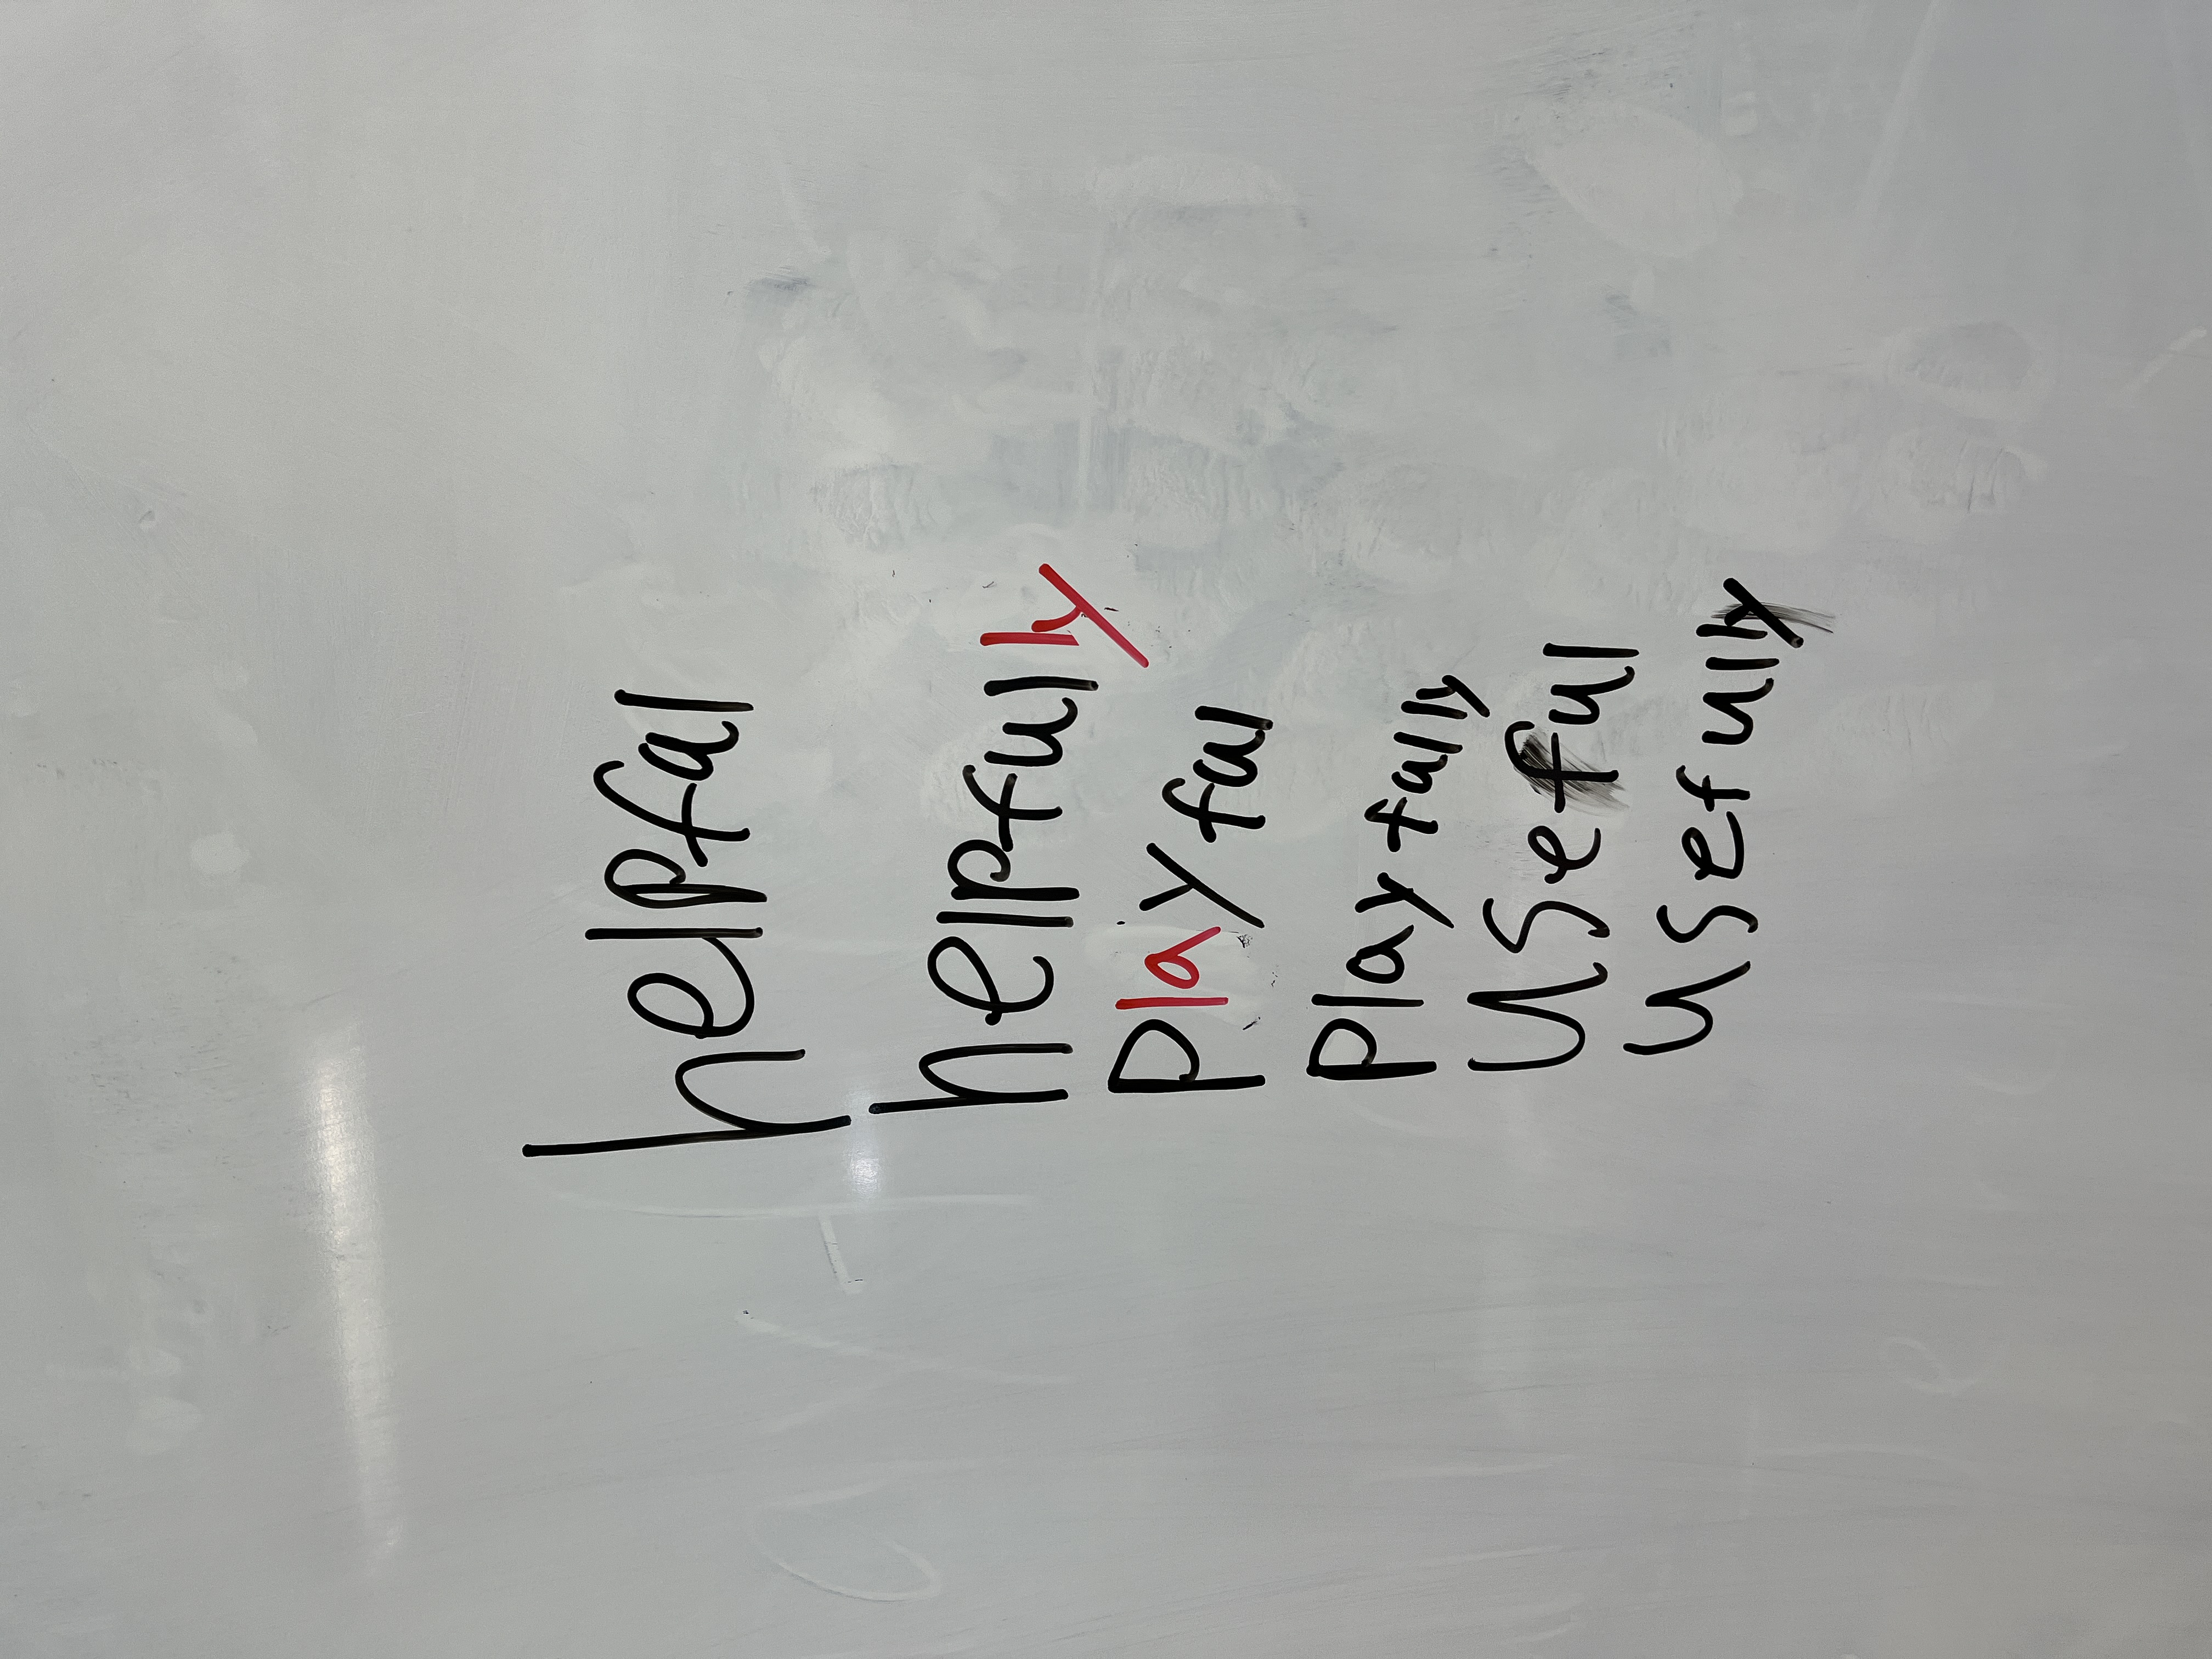 helpful
helpfully
playful
playfully
useful
usefully